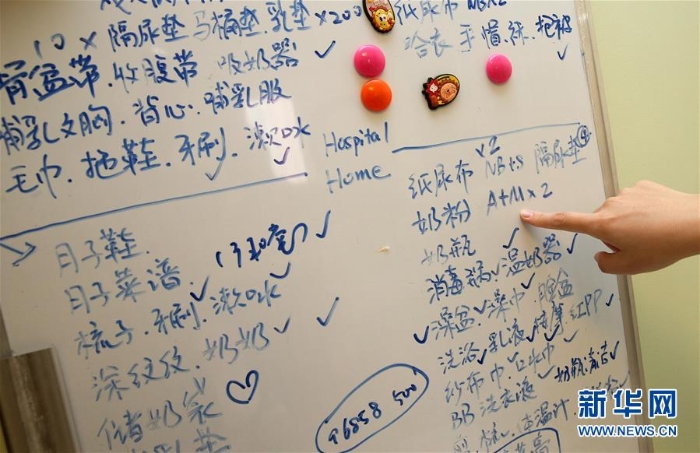 隔尿垫 马桶垫.乳垫×200
10×
骨盆带.收腹带 吸奶器
哺乳文胸.背心.哺乳服
毛巾.拖鞋.牙刷.漱口水
纸尿布 NB×2
平 帽.袜.抱被
Hospital
Home
月子鞋
月子菜谱
梳子.牙刷.漱口水
奶奶
储奶袋
乳垫
×2
纸尿布 NB+S 隔尿垫④
奶粉 A+M×2
奶瓶
消毒锅.温奶器
澡盆.澡巾.脸盆
洗浴.乳液
纱布巾 口水巾
BB洗衣液 奶瓶清洁
体温计
96858 500
新华网
WWW.NEWS.CN